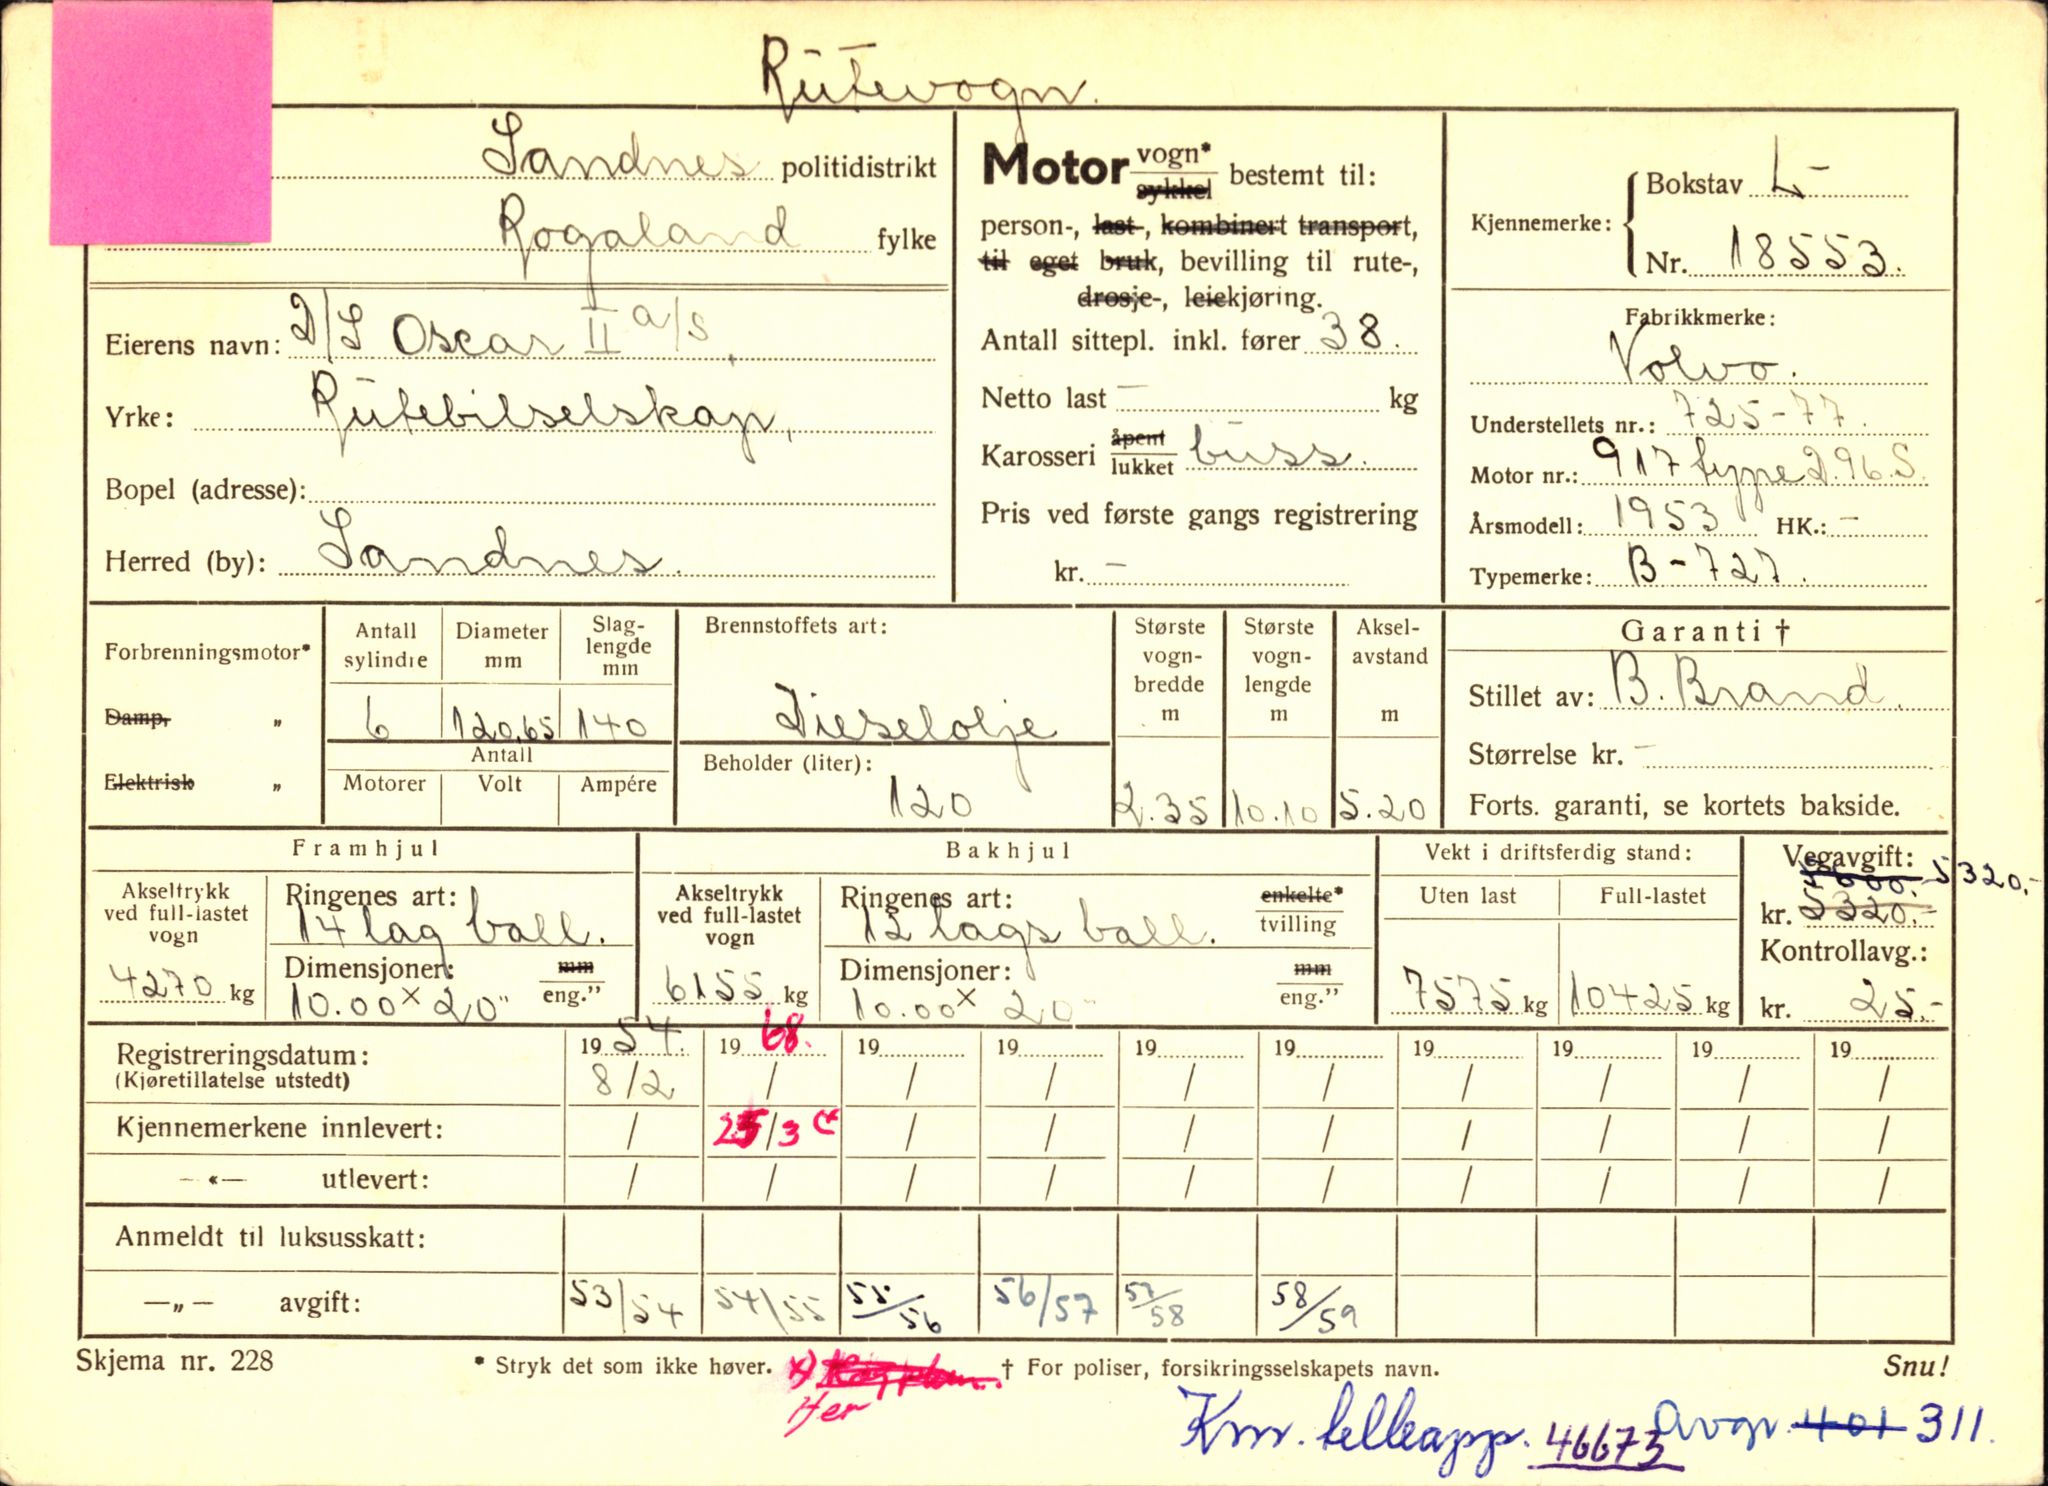 Rutevogn.
Sandnes politidistrikt
Rogaland fylke
Eierens navn: D/S Oscar II a/s,
Yrke: Rutebilselskap,
Bopel (adresse):
Herred (by): Sandnes.
Motor vogn* sykkel bestemt til:
person-, last-, kombinert transport,
til eget bruk, bevilling til rute-,
drosje-, leiekjøring.
Antall sittepl. inkl. fører 38.
Netto last — kg
Karosseri åpent lukket buss.
Pris ved første gangs registrering
kr. —
Kjennemerke: Bokstav L-
Nr. 18553.
Fabrikkmerke:
Volvo.
Understellets nr.: 725-77.
Motor nr.: 917 type D.96.S.
Årsmodell: 1953 HK.: —
Typemerke: B-727.
Forbrenningsmotor*
Damp, „
Elektrisk „
Antall sylindre
6
Diameter mm
120.65
Slag-lengde mm
140
Antall
Motorer Volt Ampére
Brennstoffets art:
Dieselolje
Beholder (liter):
120
Største vogn-bredde m
2.35
Største vogn-lengde m
10.10
Aksel-avstand m
5.20
Garanti †
Stillet av: B. Brand.
Størrelse kr. —
Forts. garanti, se kortets bakside.
Framhjul
Akseltrykk ved full-lastet vogn
4270 kg
Ringenes art:
14 lag ball.
Dimensjoner: mm eng.”
10.00 x 20"
Bakhjul
Akseltrykk ved full-lastet vogn
6155 kg
Ringenes art: enkelte* tvilling
12 lags ball.
Dimensjoner: mm eng.”
10.00 x 20"
Vekt i driftsferdig stand:
Uten last Full-lastet
7575 kg 10425 kg
Vegavgift: 5320,-
kr. 5320.-
Kontrollavg.:
kr. 25.-
Registreringsdatum: 1954. 1968. 19 19 19 19 19 19 19 19
(Kjøretillatelse utstedt) 8/2 / / / / / / / / /
Kjennemerkene innlevert: / 25/3 / / / / / / / /
—«— utlevert: / / / / / / / / / /
Anmeldt til luksusskatt:
—„— avgift: 53/54 54/55 55/56 56/57 57/58 58/59
Skjema nr. 228 * Stryk det som ikke høver. x) † For poliser, forsikringsselskapets navn. Snu!
Her
Km. telleapp. 46673 avgr. 401 311.